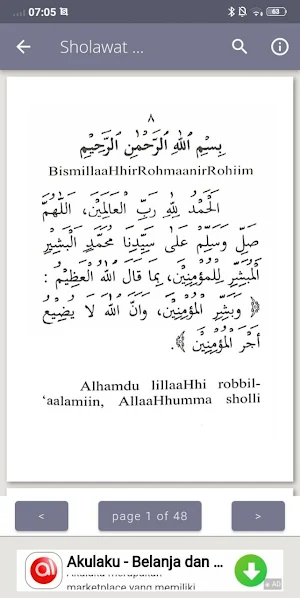 07:05
63
Sholawat ...
٨
بِسْمِ اللهِ الرَّحْمٰنِ الرَّحِيْمِ
BismillaaHhirRohmaanirRohiim
اَلْحَمْدُ لِلّٰهِ رَبِّ الْعَالَمِيْنَ، اَللّٰهُمَّ
صَلِّ وَسَلِّمْ عَلَى سَيِّدِنَا مُحَمَّدٍ الْبَشِيْرِ
الْمُبَشِّرِ لِلْمُؤْمِنِيْنَ، بِمَا قَالَ اللهُ الْعَظِيْمُ :
﴿ وَبَشِّرِ الْمُؤْمِنِيْنَ، وَاَنَّ اللهَ لَا يُضِيْعُ
اَجْرَ الْمُؤْمِنِيْنَ ﴾.
Alhamdu lillaaHhi robbil-
'aalamiin, AllaaHhumma sholli
<
page 1 of 48
>
Akulaku - Belanja dan ...
marketplace yang memiliki
AD